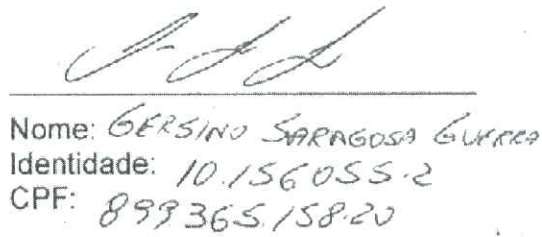 Nome: GERSINO SARAGOSA GUERRA
Identidade: 10.156055-2
CPF: 899.365.158-20